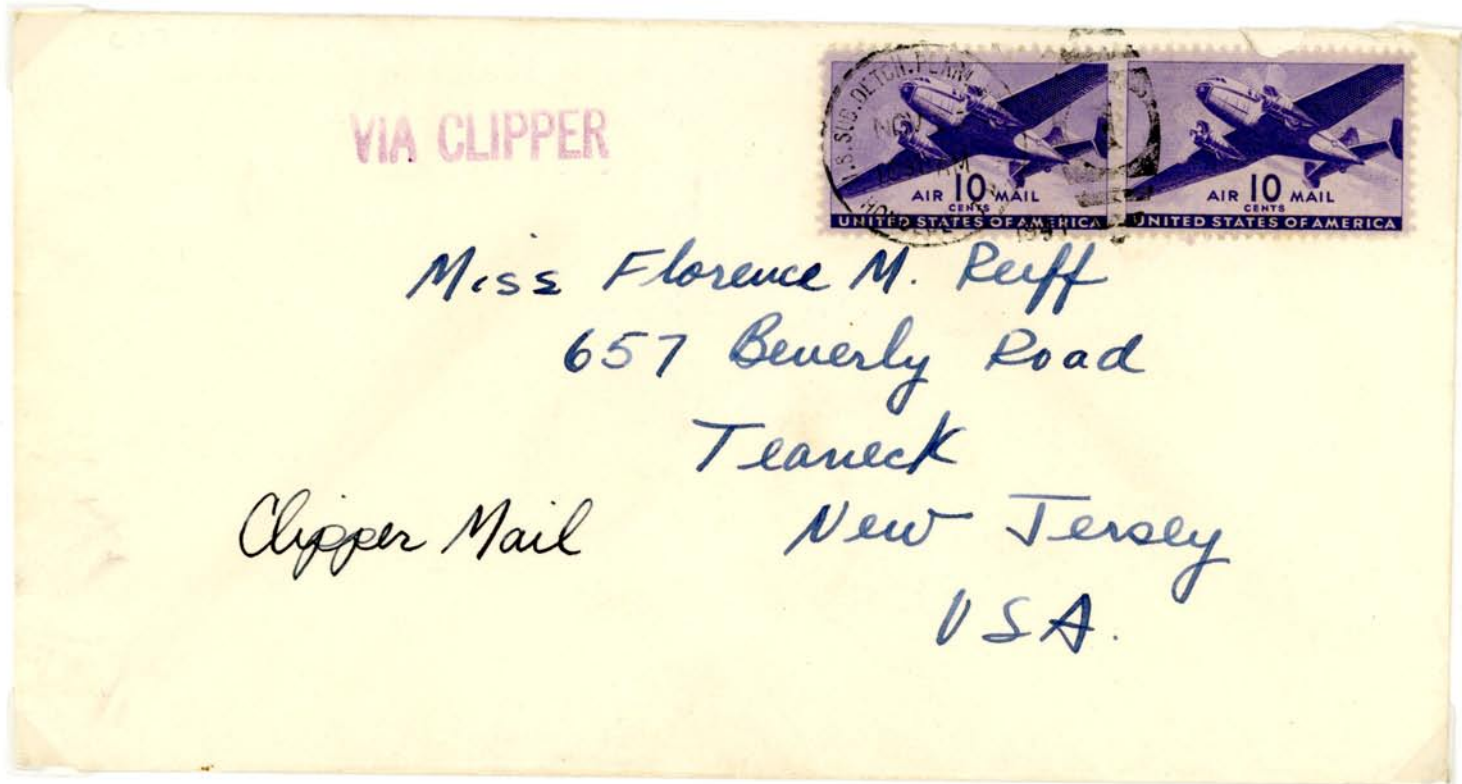 VIA CLIPPER
NOV
AM
1941
AIR 10 MAIL
CENTS
UNITED STATES OF AMERICA
AIR 10 MAIL
CENTS
UNITED STATES OF AMERICA
Miss Florence M. Reiff
657 Beverly Road
Teaneck
New Jersey
USA.
Clipper Mail